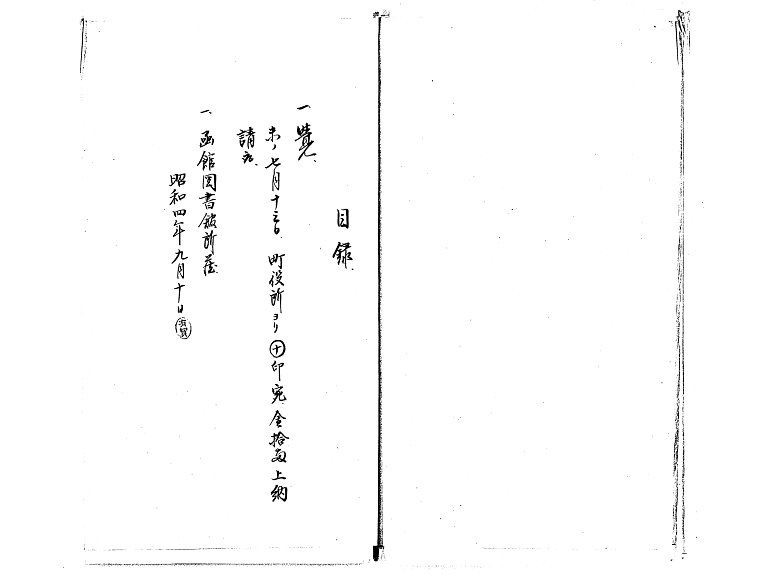 目録
一 覺
未ノ七月十三日 町役所ヨリ㊉印宛金拾両上納
請取
一 函館図書館所蔵
昭和四年九月十日